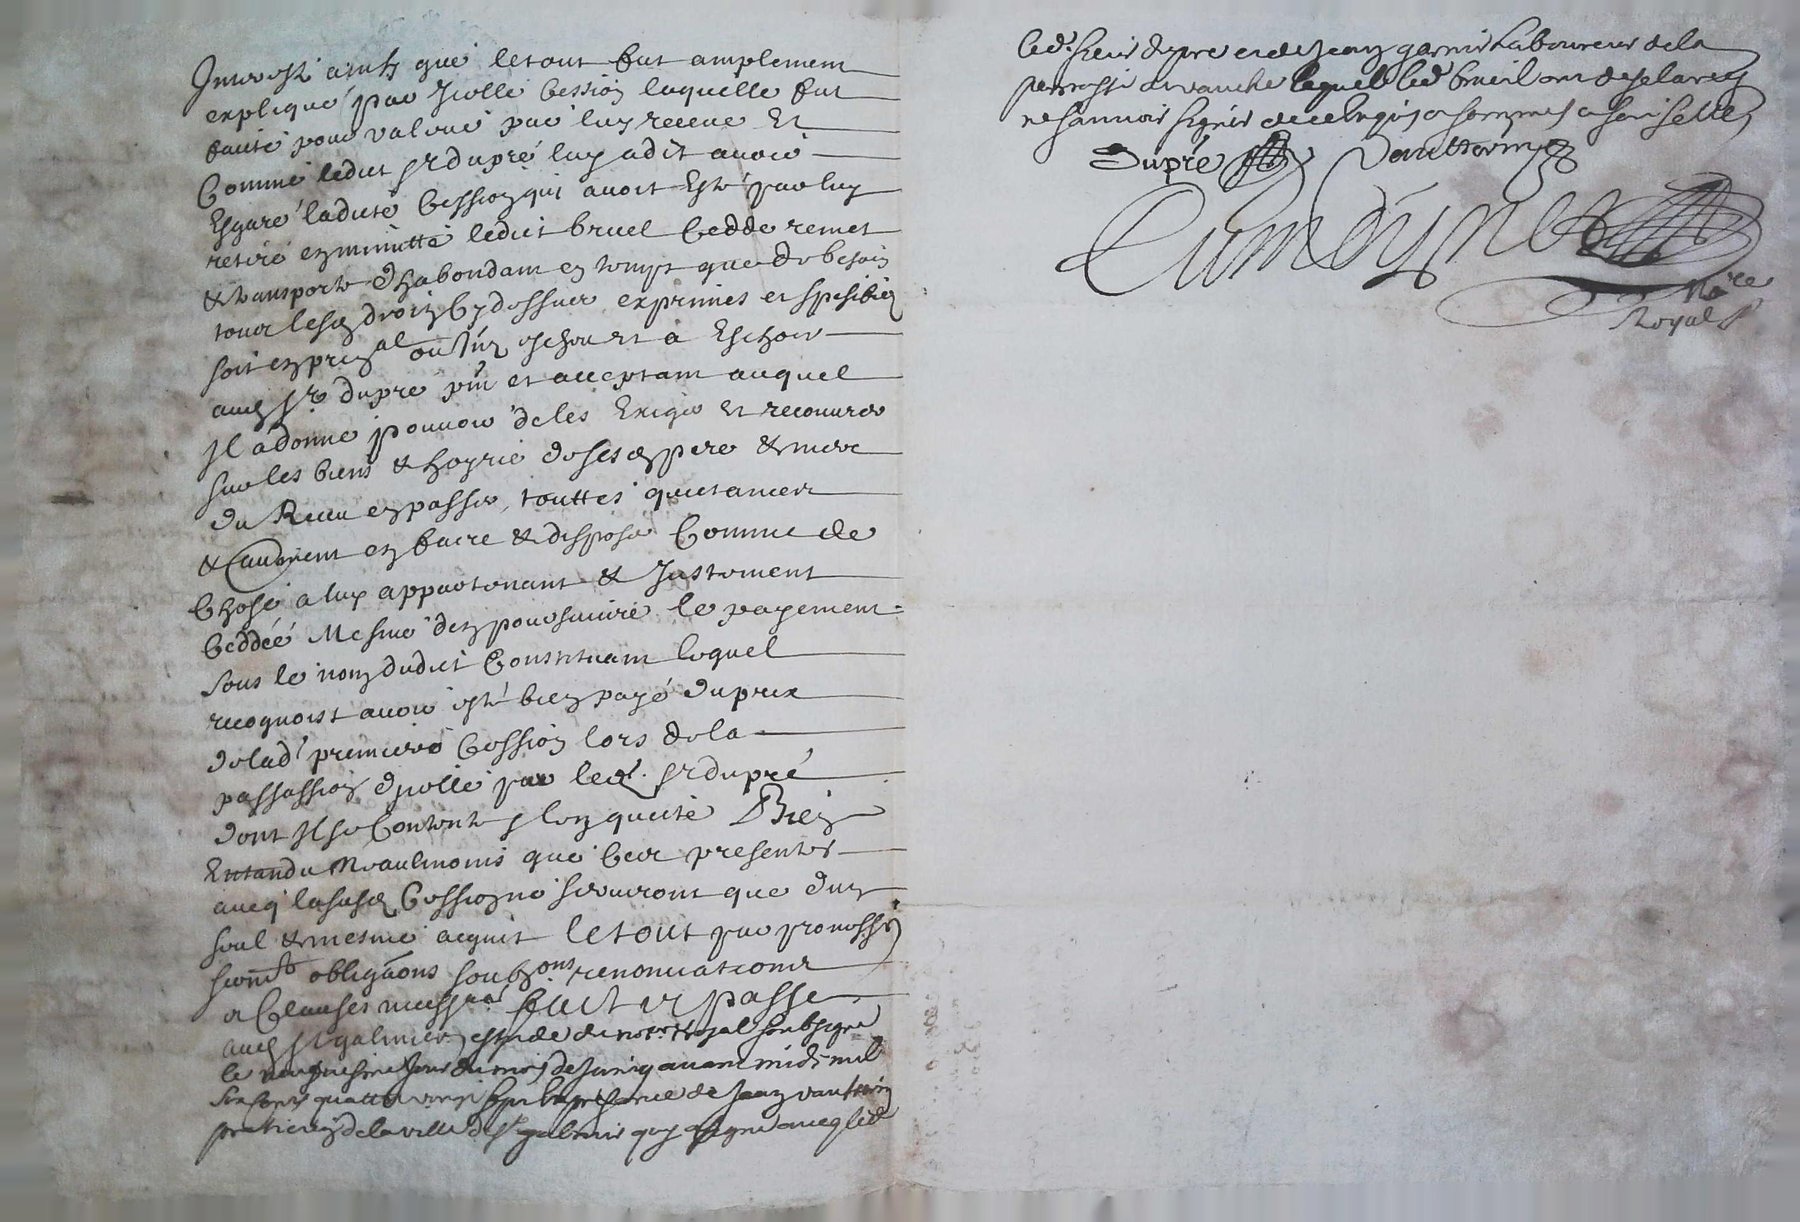 Interest ainsy que le tout fut amplement
expliqué par icelle cession laquelle fut
faicte pour valoué par luy receue Et
Comme ledict sr dupré luy a dit avoir
Esgaré ladicte Cession qui avoit Esté par luy
retiré en minutte ledict bruel Cedde remet
& transporte d'habondant en temps que de besoin
tous lesd droitz Cy dessues exprimes et spesifies
soit en prinal ou Inz escheu et a Eschoir
aud sr dupre pnt et acceptant auquel
Il a donné pouvoir de les Exiger et recouvrer
sur les biens & hoyrie de sesd pere & mere
du Receu en passer touttes quictances
& autrement en faire & disposer Comme de
Chose a luy appartenant & Justement
Ceddée Mesme d'en poursuivre le payement
sous le nom dudict Constituant lequel
recognoist avoir esté bien payé du prix
de lad premiere Cession lors de la
passassion d'icelle par led. sr dupré
dont Il se Contente & l'en quicte Bien
Entandu Neaulmoins que Ces presentes
avecq la susd Cession ne serviront que d'un
seul & mesme acquit le tout par promesses
obligâons soubzons renonciations
& Clauses necessres faict et passé
aud st galmier estude du notre Royal soubsigné
le jour du mois de Juing avant midy mil
six cents quattre vingt sept en presence de Jean vautterin
praticien de la ville de st galmier quy a signé avecq led
led. sieur dupre et de Jean garnier Laboureur de la
parroisse lequel & led bruel ont desclaré
ne sçauoir signer de ce enquis & sommes
Dupré Vautterin
Nore
Royal